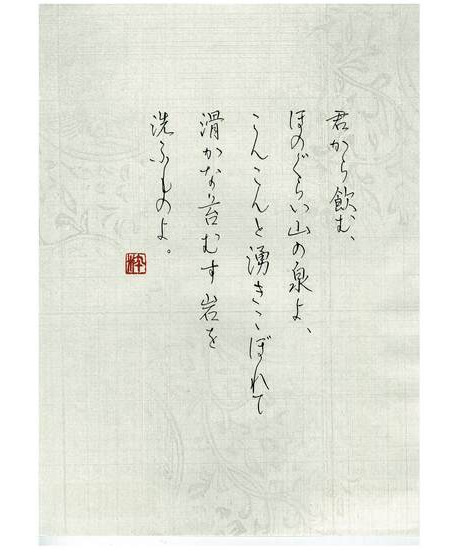 君から飲む、
ほのぐらい山の泉よ、
こんこんと湧きこぼれて
滑かな苔むす岩を
洗ふものよ。